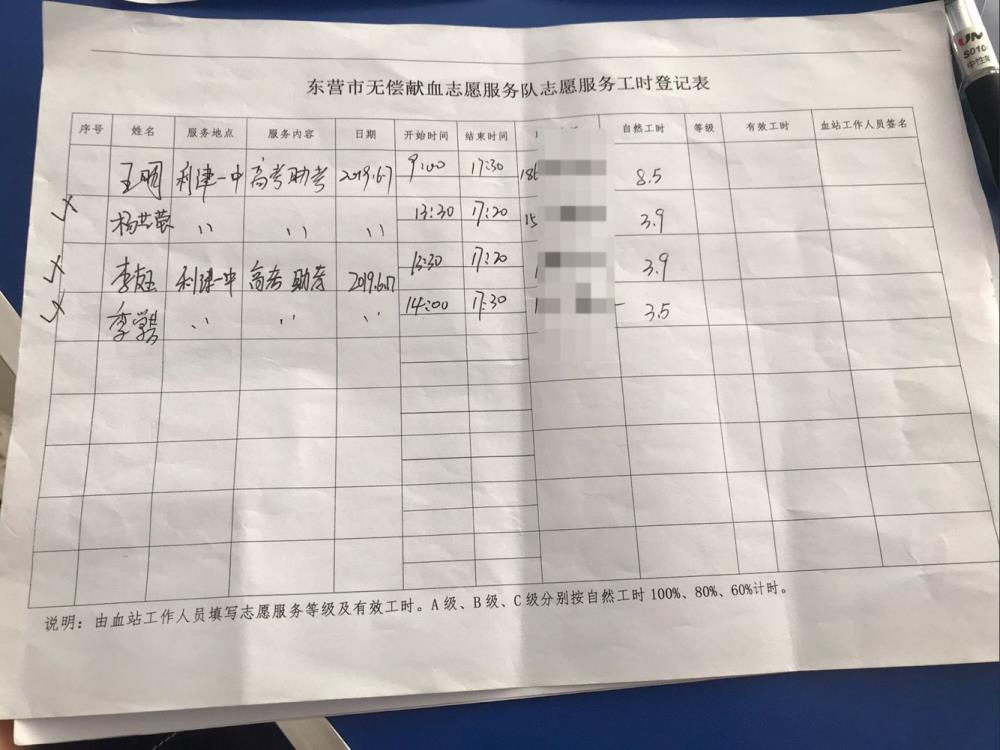 东营市无偿献血志愿服务队志愿服务工时登记表
序号 姓名 服务地点 服务内容 日期 开始时间 结束时间 自然工时 等级 有效工时 血站工作人员签名
利津一中 高考助考 2019.6.7 9:00 17:30 186 8.5
杨世蓉 〃 〃 〃 13:30 17:20 15 3.9
利津一中 高考助考 2019.6.7 13:30 17:20 1 3.9
〃 〃 〃 14:00 17:30 1 3.5
说明：由血站工作人员填写志愿服务等级及有效工时。A级、B级、C级分别按自然工时100%、80%、60%计时。
S010
中性